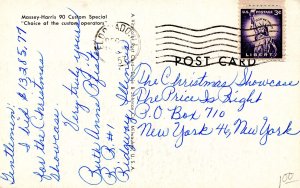 Massey-Harris 90 Custom Special
"Choice of the custom operators"
Gentlemen:
I bid $3285.79
for the Christmas
Showcase.
Very truly yours
R.R.#1
Ridgway, Ill.
POST CARD
U.S. POSTAGE
3¢
LIBERTY
The Christmas Showcase
The Price Is Right
P.O Box 710
New York 46, New York
U.S.A
100